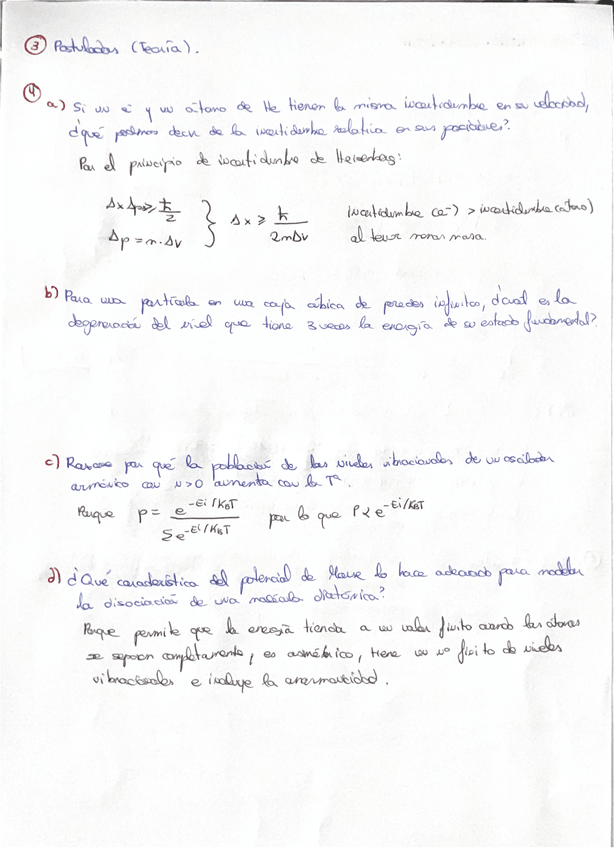 ③ Postulados (Teoría).
④
a) Si un e⁻ y un átomo de He tienen la misma incertidumbre en su velocidad,
¿qué podemos decir de la incertidumbre relativa en sus posiciones?
Por el principio de incertidumbre de Heisenberg:
Δx Δp ≥ ħ/2 } Δx ≥ ħ/2mΔv incertidumbre (e⁻) > incertidumbre (átomo)
Δp = m·Δv al tener menor masa.
b) Para una partícula en una caja cúbica de paredes infinitas, ¿cuál es la
degeneración del nivel que tiene 3 veces la energía de su estado fundamental?
c) Razone por qué la población de los niveles vibracionales de un oscilador
armónico con v>0 aumenta con la Tª.
Porque p = e^(-Ei/KBT) / Σe^(-Ei/KBT) por lo que P α e^(-Ei/KBT)
d) ¿Qué característica del potencial de Morse lo hace adecuado para modelar
la disociación de una molécula diatómica?
Porque permite que la energía tienda a un valor finito cuando los átomos
se separan completamente, es asimétrico, tiene un nº finito de niveles
vibracionales e incluye la anarmonicidad.